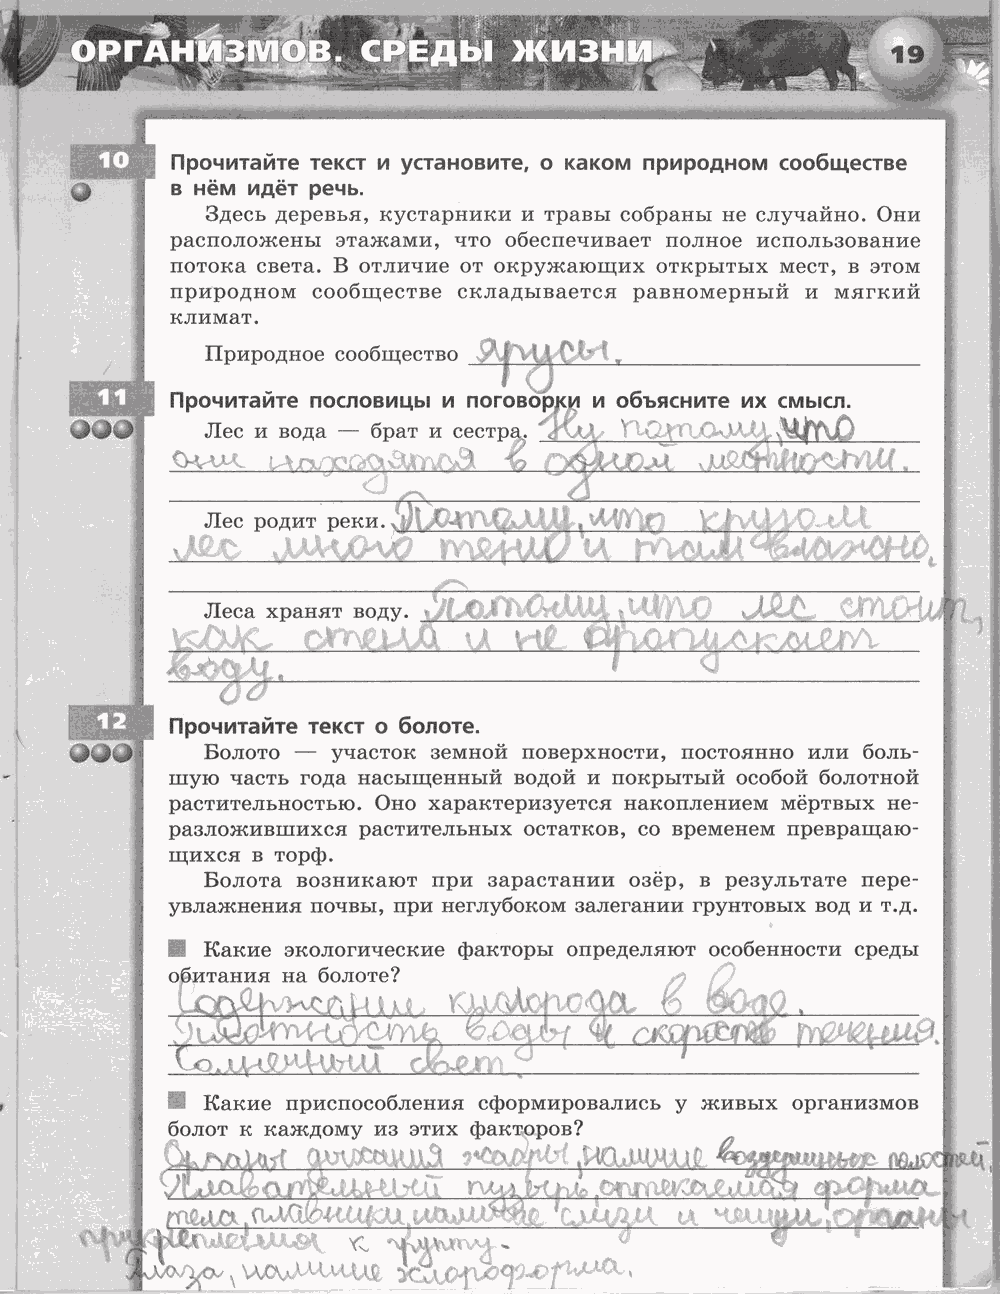 ОРГАНИЗМОВ. СРЕДЫ ЖИЗНИ
19
10
Прочитайте текст и установите, о каком природном сообществе
в нём идёт речь.
Здесь деревья, кустарники и травы собраны не случайно. Они
расположены этажами, что обеспечивает полное использование
потока света. В отличие от окружающих открытых мест, в этом
природном сообществе складывается равномерный и мягкий
климат.
Природное сообщество ярусы.
11
Прочитайте пословицы и поговорки и объясните их смысл.
Лес и вода — брат и сестра. Ну потому, что
они находятся в одной местности.
Лес родит реки. Потому, что кругом
лес много тени и там влажно.
Леса хранят воду. Потому, что лес стоит,
как стена и не пропускает
воду.
12
Прочитайте текст о болоте.
Болото — участок земной поверхности, постоянно или боль-
шую часть года насыщенный водой и покрытый особой болотной
растительностью. Оно характеризуется накоплением мёртвых не-
разложившихся растительных остатков, со временем превращаю-
щихся в торф.
Болота возникают при зарастании озёр, в результате пере-
увлажнения почвы, при неглубоком залегании грунтовых вод и т.д.
Какие экологические факторы определяют особенности среды
обитания на болоте?
Содержание кислорода в воде.
Плотность воды и скорость течения.
Солнечный свет.
Какие приспособления сформировались у живых организмов
болот к каждому из этих факторов?
Органы дыхания жабры, наличие воздушных полостей,
Плавательный пузырь, оптекаемая форма
тела, плавники, наличие слизи и чешуи, органы
прикрепления к грунту.
Глаза, наличие хлороформа.